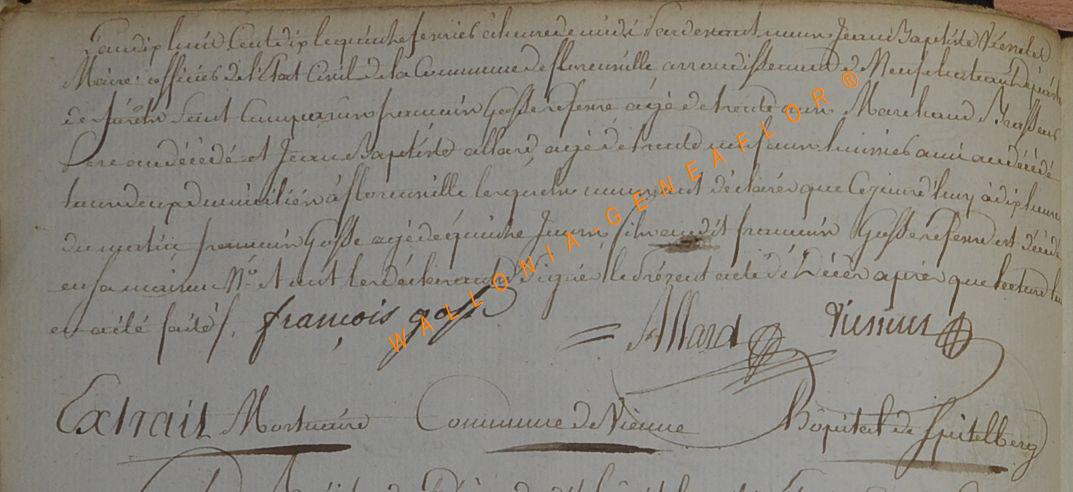 L'an dix huit Cent dix le quinze fevrier à heure de midi Pardevant nous Jean Baptiste Viende
Maire officier de l'Etat Civil de la Commune de florenville arrondissement de Neufchateau Departe
de forêts sont Comparus francois Gosse refeire agé de trente ans Marchand Brasseur
Pere au décédé et Jean Baptiste allard, agé de trente neuf ans huissier ami au décédé
tous deux domiciliés à florenville lesquels nous ont déclarés que Cejourd'huy à dix heures
du matin francois Gosse agé de quinze Jours fils audit francois Gosse refeire est décédé
en sa maison N.º et ont les déclarants signé le présent acte de Décès après que lecture leur
en a été faite /. françois goss Allard
Extrait Mortuaire Commune de Vienne Hôpital de Spitelberg
WALLONIA-GENEAFLOR ®